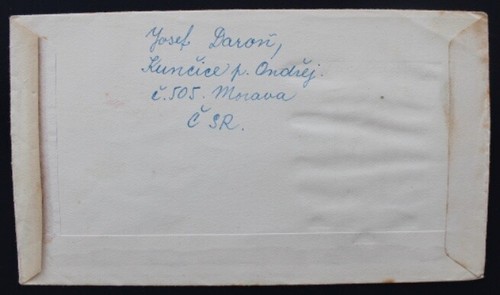 Josef Daroň,
Kunčice p. Ondřej.
č. 505. Morava
Č SR.